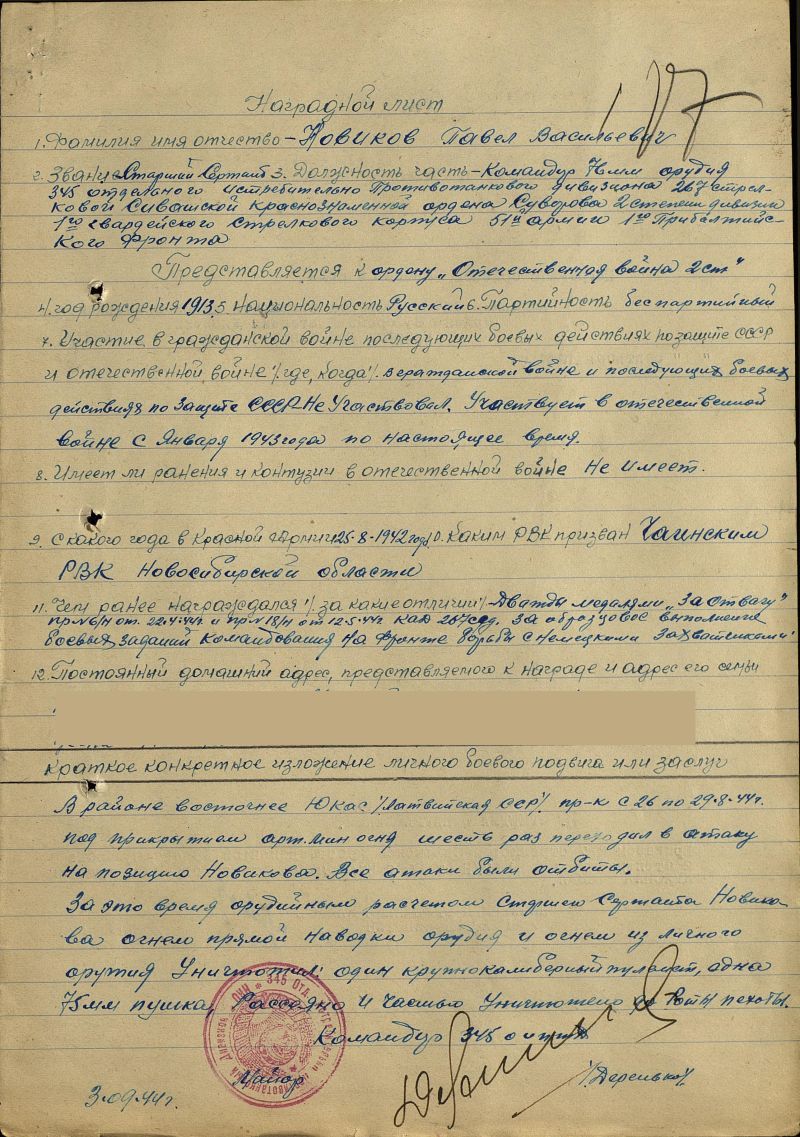 Наградной лист
1. Фамилия имя отчество – Новиков Павел Васильевич
2. Звание Старший Сержант 3. Должность часть – Командир 76мм орудия
345 отдельного истребительно Противотанкового дивизиона 267 стрел-
ковой Сивашской краснознаменной ордена Суворова 2 степени дивизии
1го гвардейского стрелкового корпуса 51й армии 1го Прибалтийс-
кого Фронта
Представляется к ордену „Отечественная война 2 ст"
4. год рождения 1913 5. Национальность Русский 6. Партийность беспартийный
7. Участие в гражданской войне последующих боевых действиях по защите СССР
и отечественной войне /где, когда/. в гражданской войне и последующих боевых
действиях по защите СССР Не Участвовал. Участвует в отечественной
войне с Января 1943 года по настоящее время.
8. Имеет ли ранения и контузии в отечественной войне Не Имеет.
9. С какого года в Красной Армии 25-8-1942 год 10. Каким РВК призван Чаинским
РВК Новосибирской области
11. Чем ранее награждался /за какие отличии/. Дважды медалями „За Отвагу"
пр-№ 6/н от. 22.4.44г и пр-№ 18/н от 12-5-44г 267сд. За образцовое выполнение
боевых заданий Командования на Фронте борьбы с немецкими захватчиками
12. Постоянный домашний адрес, представляемого к награде и адрес его семьи
краткое конкретное изложение личного боевого подвига или заслуг
В районе восточнее Юкас /Латвийская ССР/. пр-к с 26 по 29-8-44г.
под прикрытием арт. мин огня шесть раз переходил в атаку
на позицию Новикова. Все атаки были отбиты.
За это время орудийным расчетом Старшего Сержанта Новико-
ва огнем прямой наводки орудия и огнем из личного
оружия Уничтожил: один крупнокалиберный пулемет, одна
75мм пушка, Рассеяно и частью Уничтожено до роты пехоты.
Командир 345 оиптд
Майор
3.09.44г.